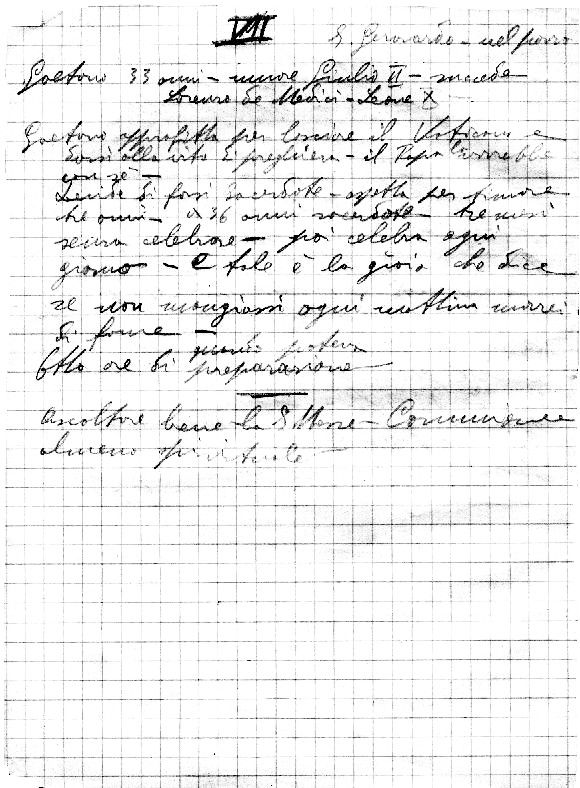 VII
S. Gerardo - nel pozzo
Gaetano 33 anni - muore Giulio II - succede
Lorenzo de Medici - Leone X
Gaetano approfitta per lasciare il Vaticano e
darsi alla vita di preghiera - il Papa lo vorrebbe
con sè -
Decide di farsi Sacerdote - aspetta per
tre anni - a 36 anni sacerdote - tre mesi
senza celebrare - poi celebra ogni
giorno - e tale è la gioia che dice
se non mangiassi ogni mattina morrei
di fame -
quando poteva
Otto ore di preparazione
Ascoltare bene la S. Messa - Comunione
almeno spirituale -